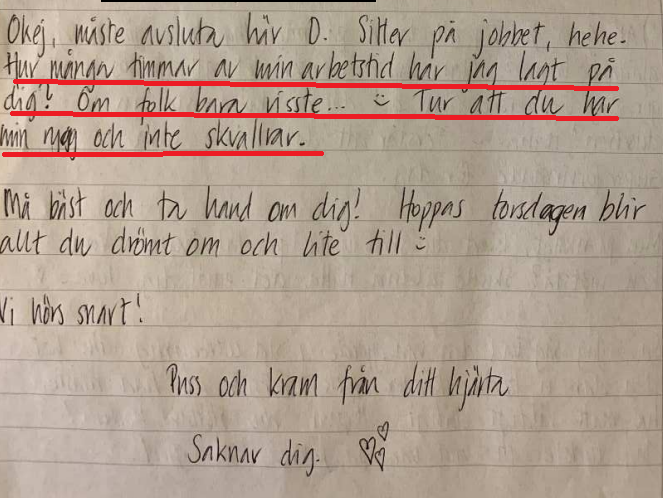 Okej, måste avsluta här D. Sitter på jobbet, hehe.
Hur många timmar av min arbetstid har jag lagt på
dig? Om folk bara visste... :) Tur att du har
min rygg och inte skvallrar.
Må bäst och ta hand om dig! Hoppas torsdagen blir
allt du drömt om och lite till :)
Vi hörs snart!
Puss och kram från ditt hjärta
Saknar dig. ♡♡♡